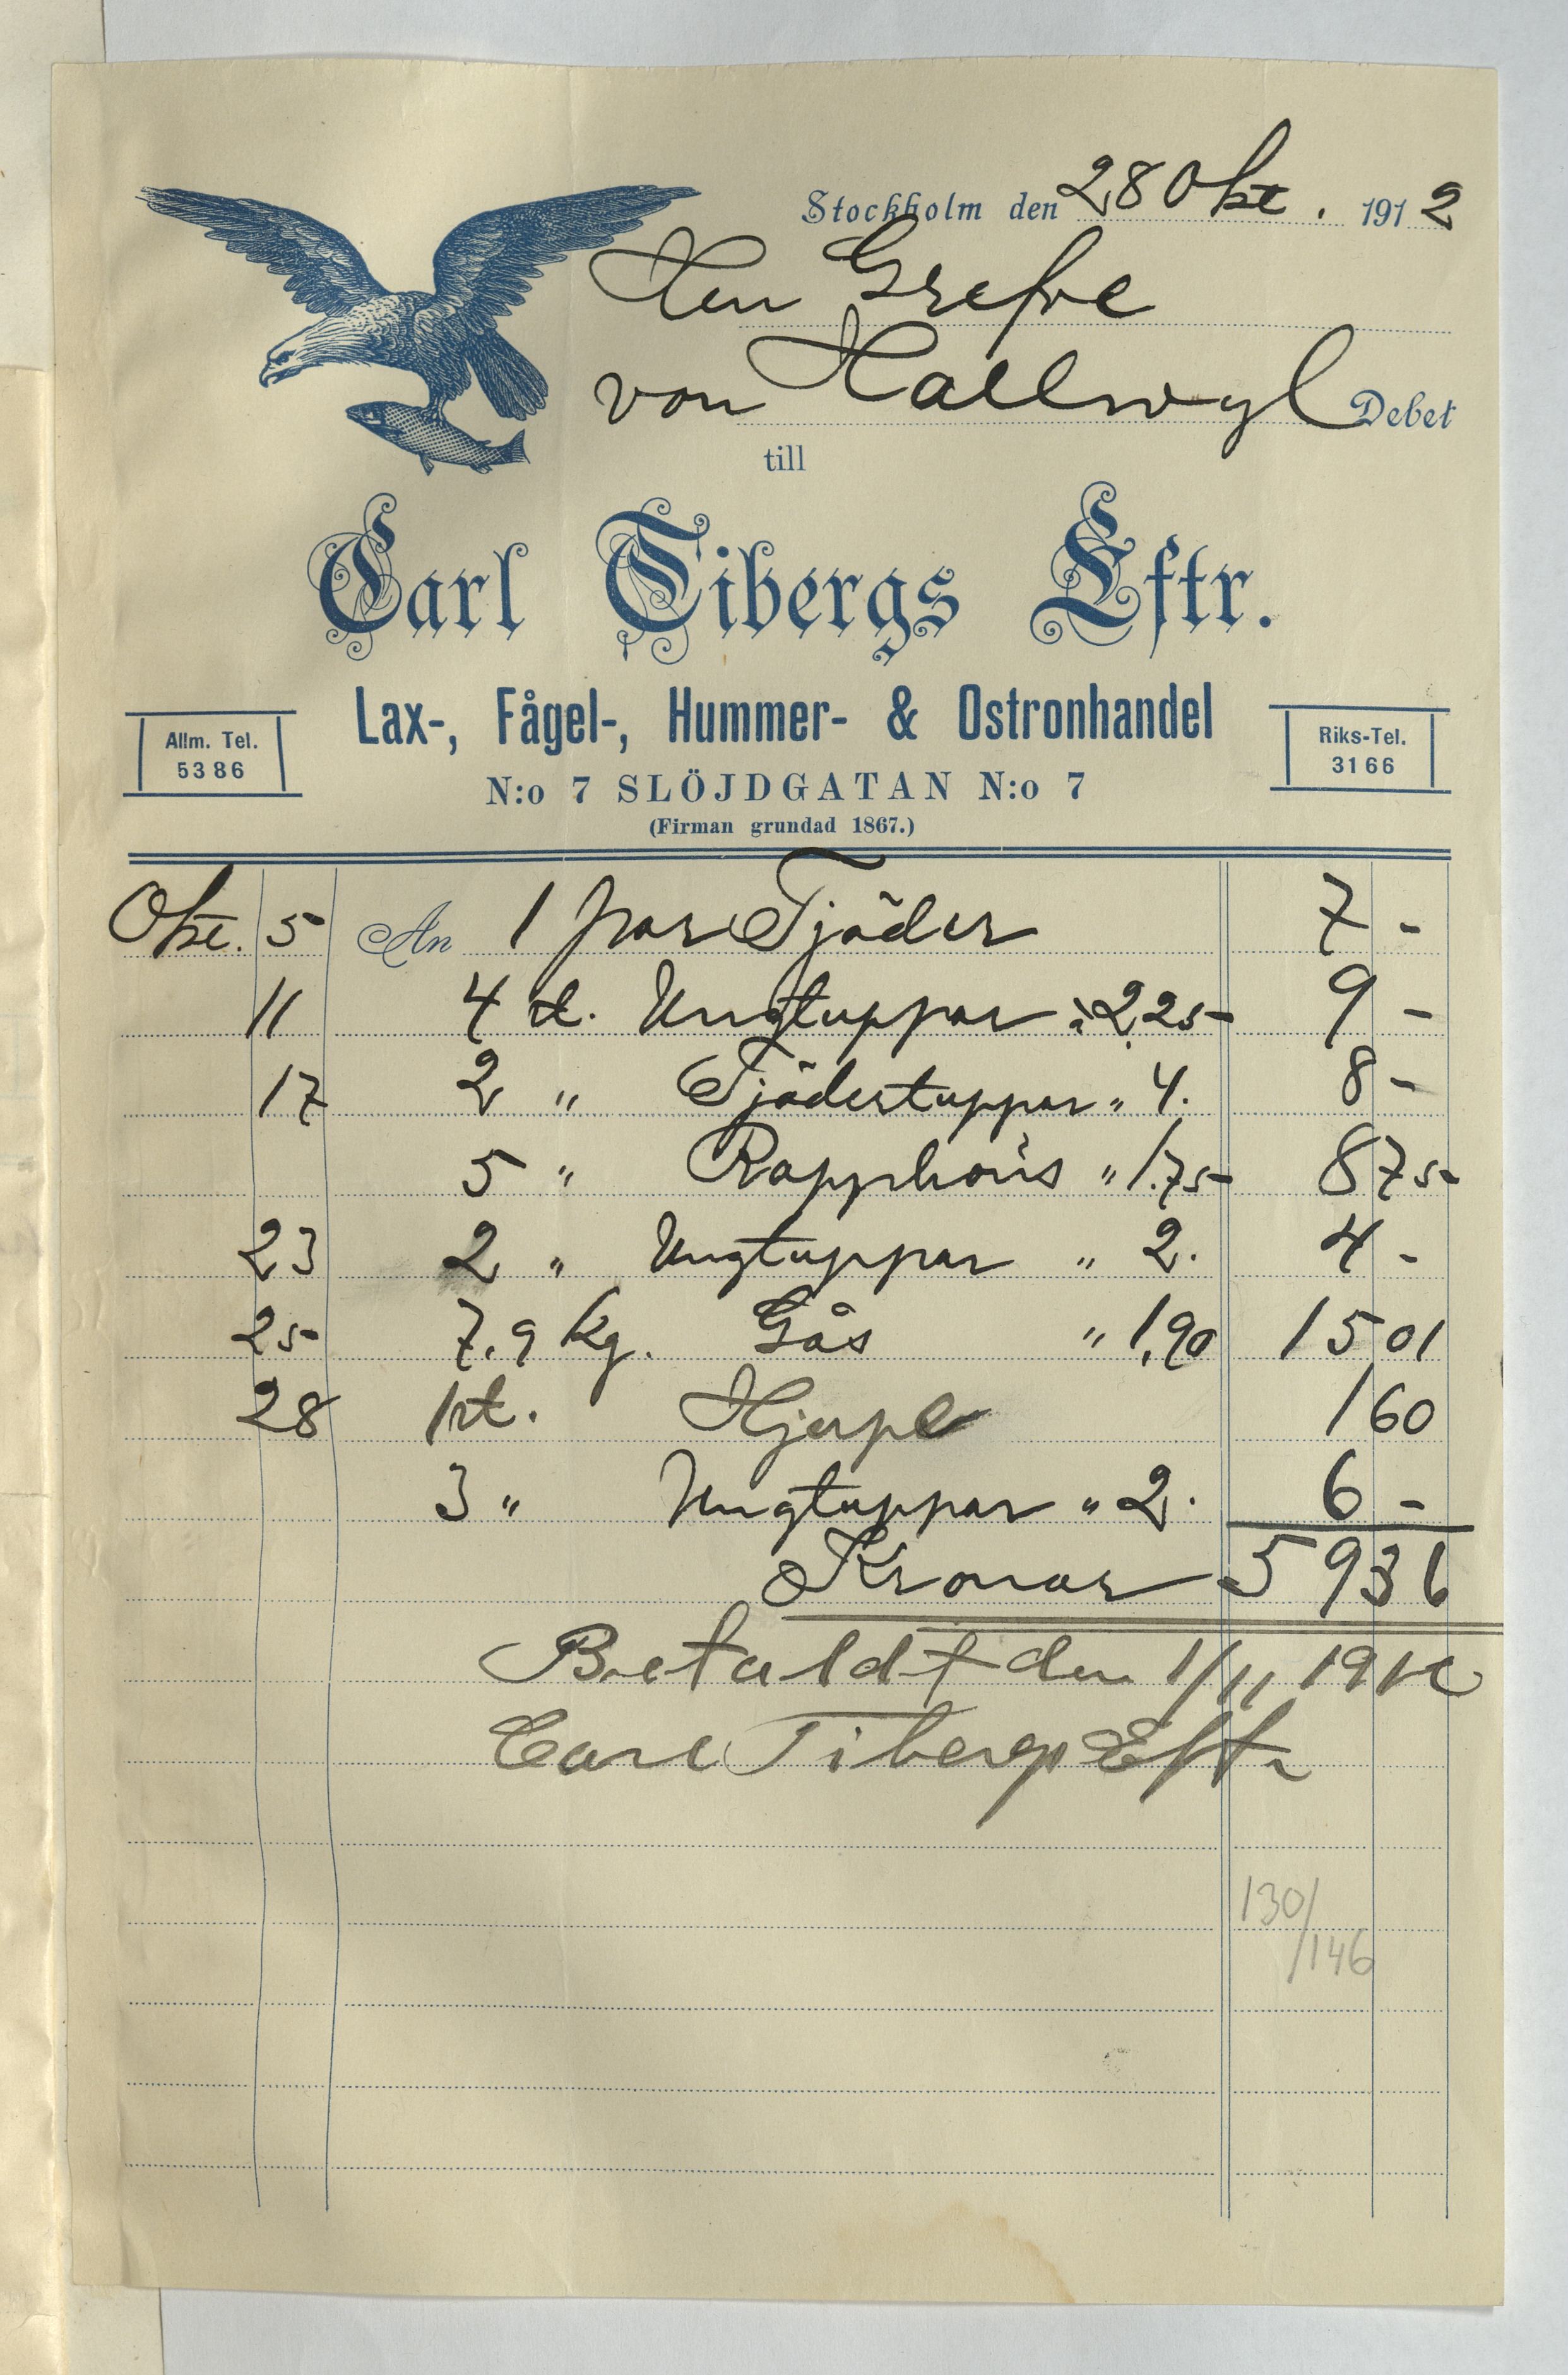 Stockholm den 28 Okt. 1912
Herr Grefve
von Hallwyl Debet
till
Carl Tibergs Eftr.
Lax-, Fågel-, Hummer- & Ostronhandel
Allm. Tel.
5386
Riks-Tel.
3166
N:o 7 SLÖJDGATAN N:o 7
(Firman grundad 1867.)
Okt. 5 An 1 par Tjäder 7 -
11 4 st. Ungtuppar à 2,25 9 -
17 2 " Tjädertuppar " 4. 8 -
5 " Rapphöns " 1.75 8 75
23 2 " Ungtuppar " 2. 4 -
25 7,9 kg. Gås " 1,90 15 01
28 1 st. Hjerpe 1 60
3 " Ungtuppar " 2. 6 -
Kronor 59 36
Betaldt den 1/11 1912
Carl Tibergs Eftr
130/
/146